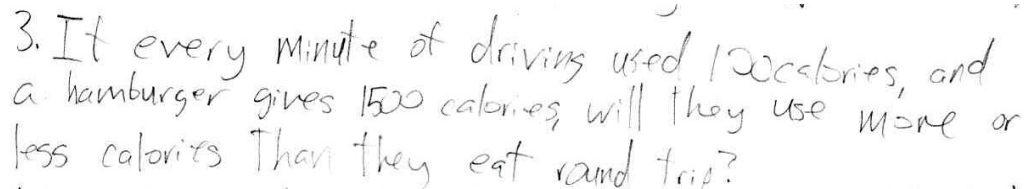 3. If every minute of driving used 100 calories, and
a hamburger gives 1500 calories, will they use more or
less calories Than they eat round trip?